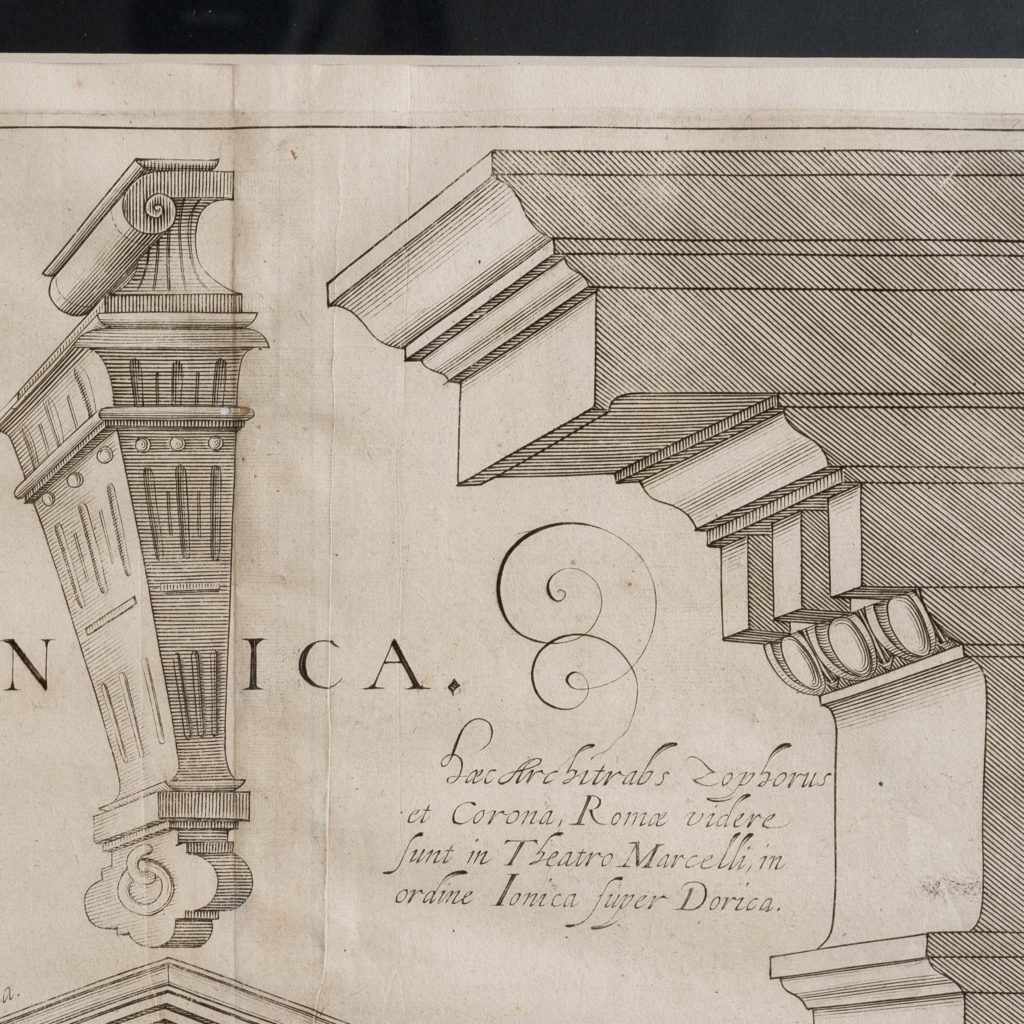 N ICA.
hæc Architrabs Zophorus
et Corona, Romæ videre
sunt in Theatro Marcelli, in
ordine Ionica super Dorica.
a.